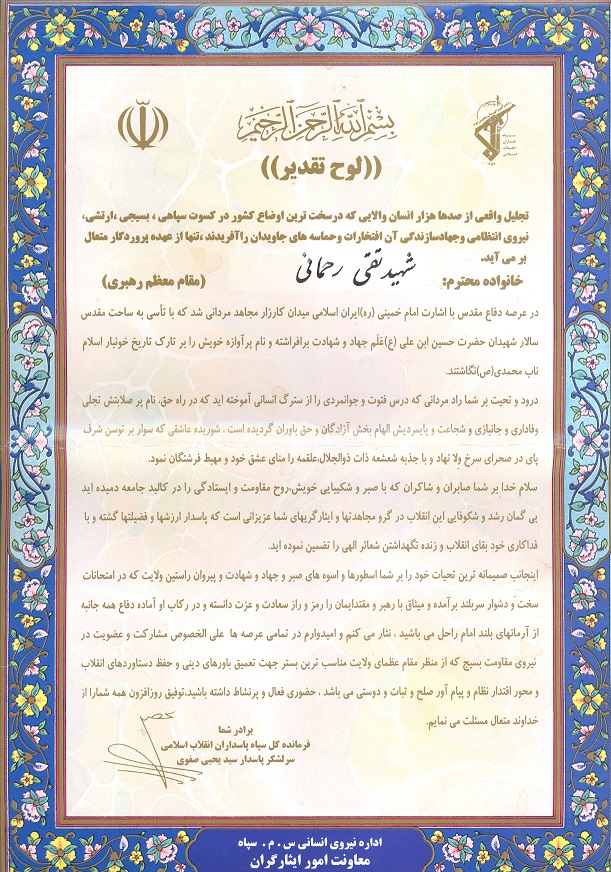 بسم الله الرحمن الرحیم
سپاه
پاسداران
انقلاب
اسلامی
((لوح تقدیر))
تجلیل واقعی از صدها هزار انسان والایی که درسخت ترین اوضاع کشور در کسوت سپاهی ، بسیجی ،ارتشی،
نیروی انتظامی وجهادسازندگی آن افتخارات وحماسه های جاویدان راآفریدند،تنها از عهده پروردگار متعال
بر می آید.
(مقام معظم رهبری)
خانواده محترم: شهید تقی رحمانی
در عرصه دفاع مقدس با اشارت امام خمینی (ره)ایران اسلامی میدان کارزار مجاهد مردانی شد که با تأسی به ساحت مقدس
سالار شهیدان حضرت حسین ابن علی (ع)عَلَم جهاد و شهادت برافراشته و نام پرآوازه خویش را بر تارک تاریخ خونبار اسلام
ناب محمدی(ص)نگاشتند.
درود و تحیت بر شما راد مردانی که درس فتوت و جوانمردی را از سترگ انسانی آموخته اید که در راه حق، نام پر صلابتش تجلی
وفاداری و جانبازی و شجاعت و پایمردیش الهام بخش آزادگان و حق باوران گردیده است . شوریده عاشقی که سوار بر توسن شرف
پای در صحرای سرخ ولا نهاد و با جذبه شعشعه ذات ذوالجلال،علقمه را منای عشق خود و مهبط فرشتگان نمود.
سلام خدا بر شما صابران و شاکران که با صبر و شکیبایی خویش،روح مقاومت و ایستادگی را در کالبد جامعه دمیده اید
بی گمان رشد و شکوفایی این انقلاب در گرو مجاهدتها و ایثارگریهای شما عزیزانی است که پاسدار ارزشها و فضیلتها گشته و با
فداکاری خود بقای انقلاب و زنده نگهداشتن شعائر الهی را تضمین نموده اید.
اینجانب صمیمانه ترین تحیات خود را بر شما اسطورها و اسوه های صبر و جهاد و شهادت و پیروان راستین ولایت که در امتحانات
سخت و دشوار سربلند برآمده و میثاق با رهبر و مقتدایمان را رمز و راز سعادت و عزت دانسته و در رکاب او آماده دفاع همه جانبه
از آرمانهای بلند امام راحل می باشید ، نثار می کنم و امیدوارم در تمامی عرصه ها علی الخصوص مشارکت و عضویت در
نیروی مقاومت بسیج که از منظر مقام عظمای ولایت مناسب ترین بستر جهت تعمیق باورهای دینی و حفظ دستاوردهای انقلاب
و محور اقتدار نظام و پیام آور صلح و ثبات و دوستی می باشد ، حضوری فعال و پرنشاط داشته باشید،توفیق روزافزون همه شمارا از
خداوند متعال مسئلت می نمایم.
برادر شما
فرمانده کل سپاه پاسداران انقلاب اسلامی
سرلشکر پاسدار سید یحیی صفوی
اداره نیروی انسانی س . م . سپاه
معاونت امور ایثارگران